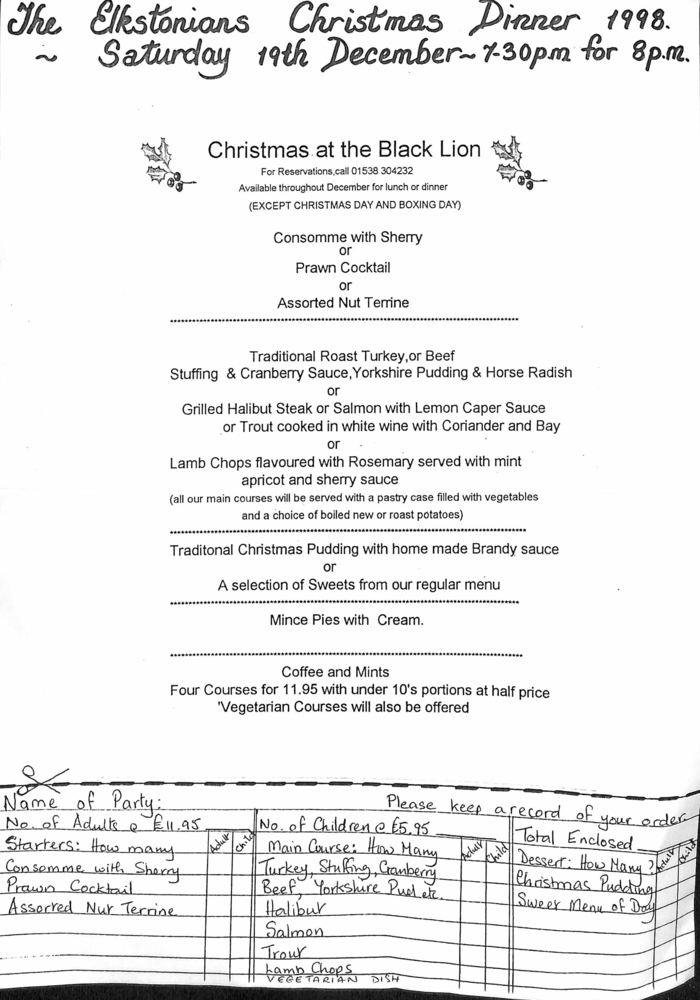 The Elkstonians Christmas Dinner 1998.
~ Saturday 19th December ~ 7-30pm for 8p.m.
Christmas at the Black Lion
For Reservations,call 01538 304232
Available throughout December for lunch or dinner
(EXCEPT CHRISTMAS DAY AND BOXING DAY)
Consomme with Sherry
or
Prawn Cocktail
or
Assorted Nut Terrine
Traditional Roast Turkey,or Beef
Stuffing & Cranberry Sauce,Yorkshire Pudding & Horse Radish
or
Grilled Halibut Steak or Salmon with Lemon Caper Sauce
or Trout cooked in white wine with Coriander and Bay
or
Lamb Chops flavoured with Rosemary served with mint
apricot and sherry sauce
(all our main courses will be served with a pastry case filled with vegetables
and a choice of boiled new or roast potatoes)
Traditonal Christmas Pudding with home made Brandy sauce
or
A selection of Sweets from our regular menu
Mince Pies with Cream.
Coffee and Mints
Four Courses for 11.95 with under 10's portions at half price
'Vegetarian Courses will also be offered
Name of Party: Please keep a record of your order
No. of Adults @ £11.95
Starters: How many Adult Child
Consomme with Sherry
Prawn Cocktail
Assorted Nut Terrine
No. of Children @ £5.95
Main Course: How Many Adult Child
Turkey, Stuffing, Cranberry
Beef, Yorkshire Pud etc.
Halibut
Salmon
Trout
Lamb Chops
VEGETARIAN DISH
Total Enclosed
Dessert: How Many? Adult Child
Christmas Pudding
Sweet Menu of Day